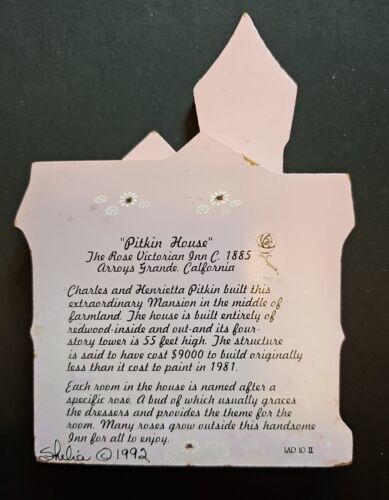 "Pitkin House"
The Rose Victorian Inn C. 1885
Arroys Grande, Calfornia
Charles and Henrietta Pitkin built this
extraordinary Mansion in the middle of
farmland. The house is built entirely of
redwood-inside and out-and its four-
story tower is 55 feet high. The structure
is said to have cost $9000 to build originally
less than it cost to paint in 1981.
Each room in the house is named after a
specific rose. A bud of which usually graces
the dressers and provides the theme for the
room. Many roses grow outside this handsome
Inn for all to enjoy.
LAD 10 II
Shelia © 1992